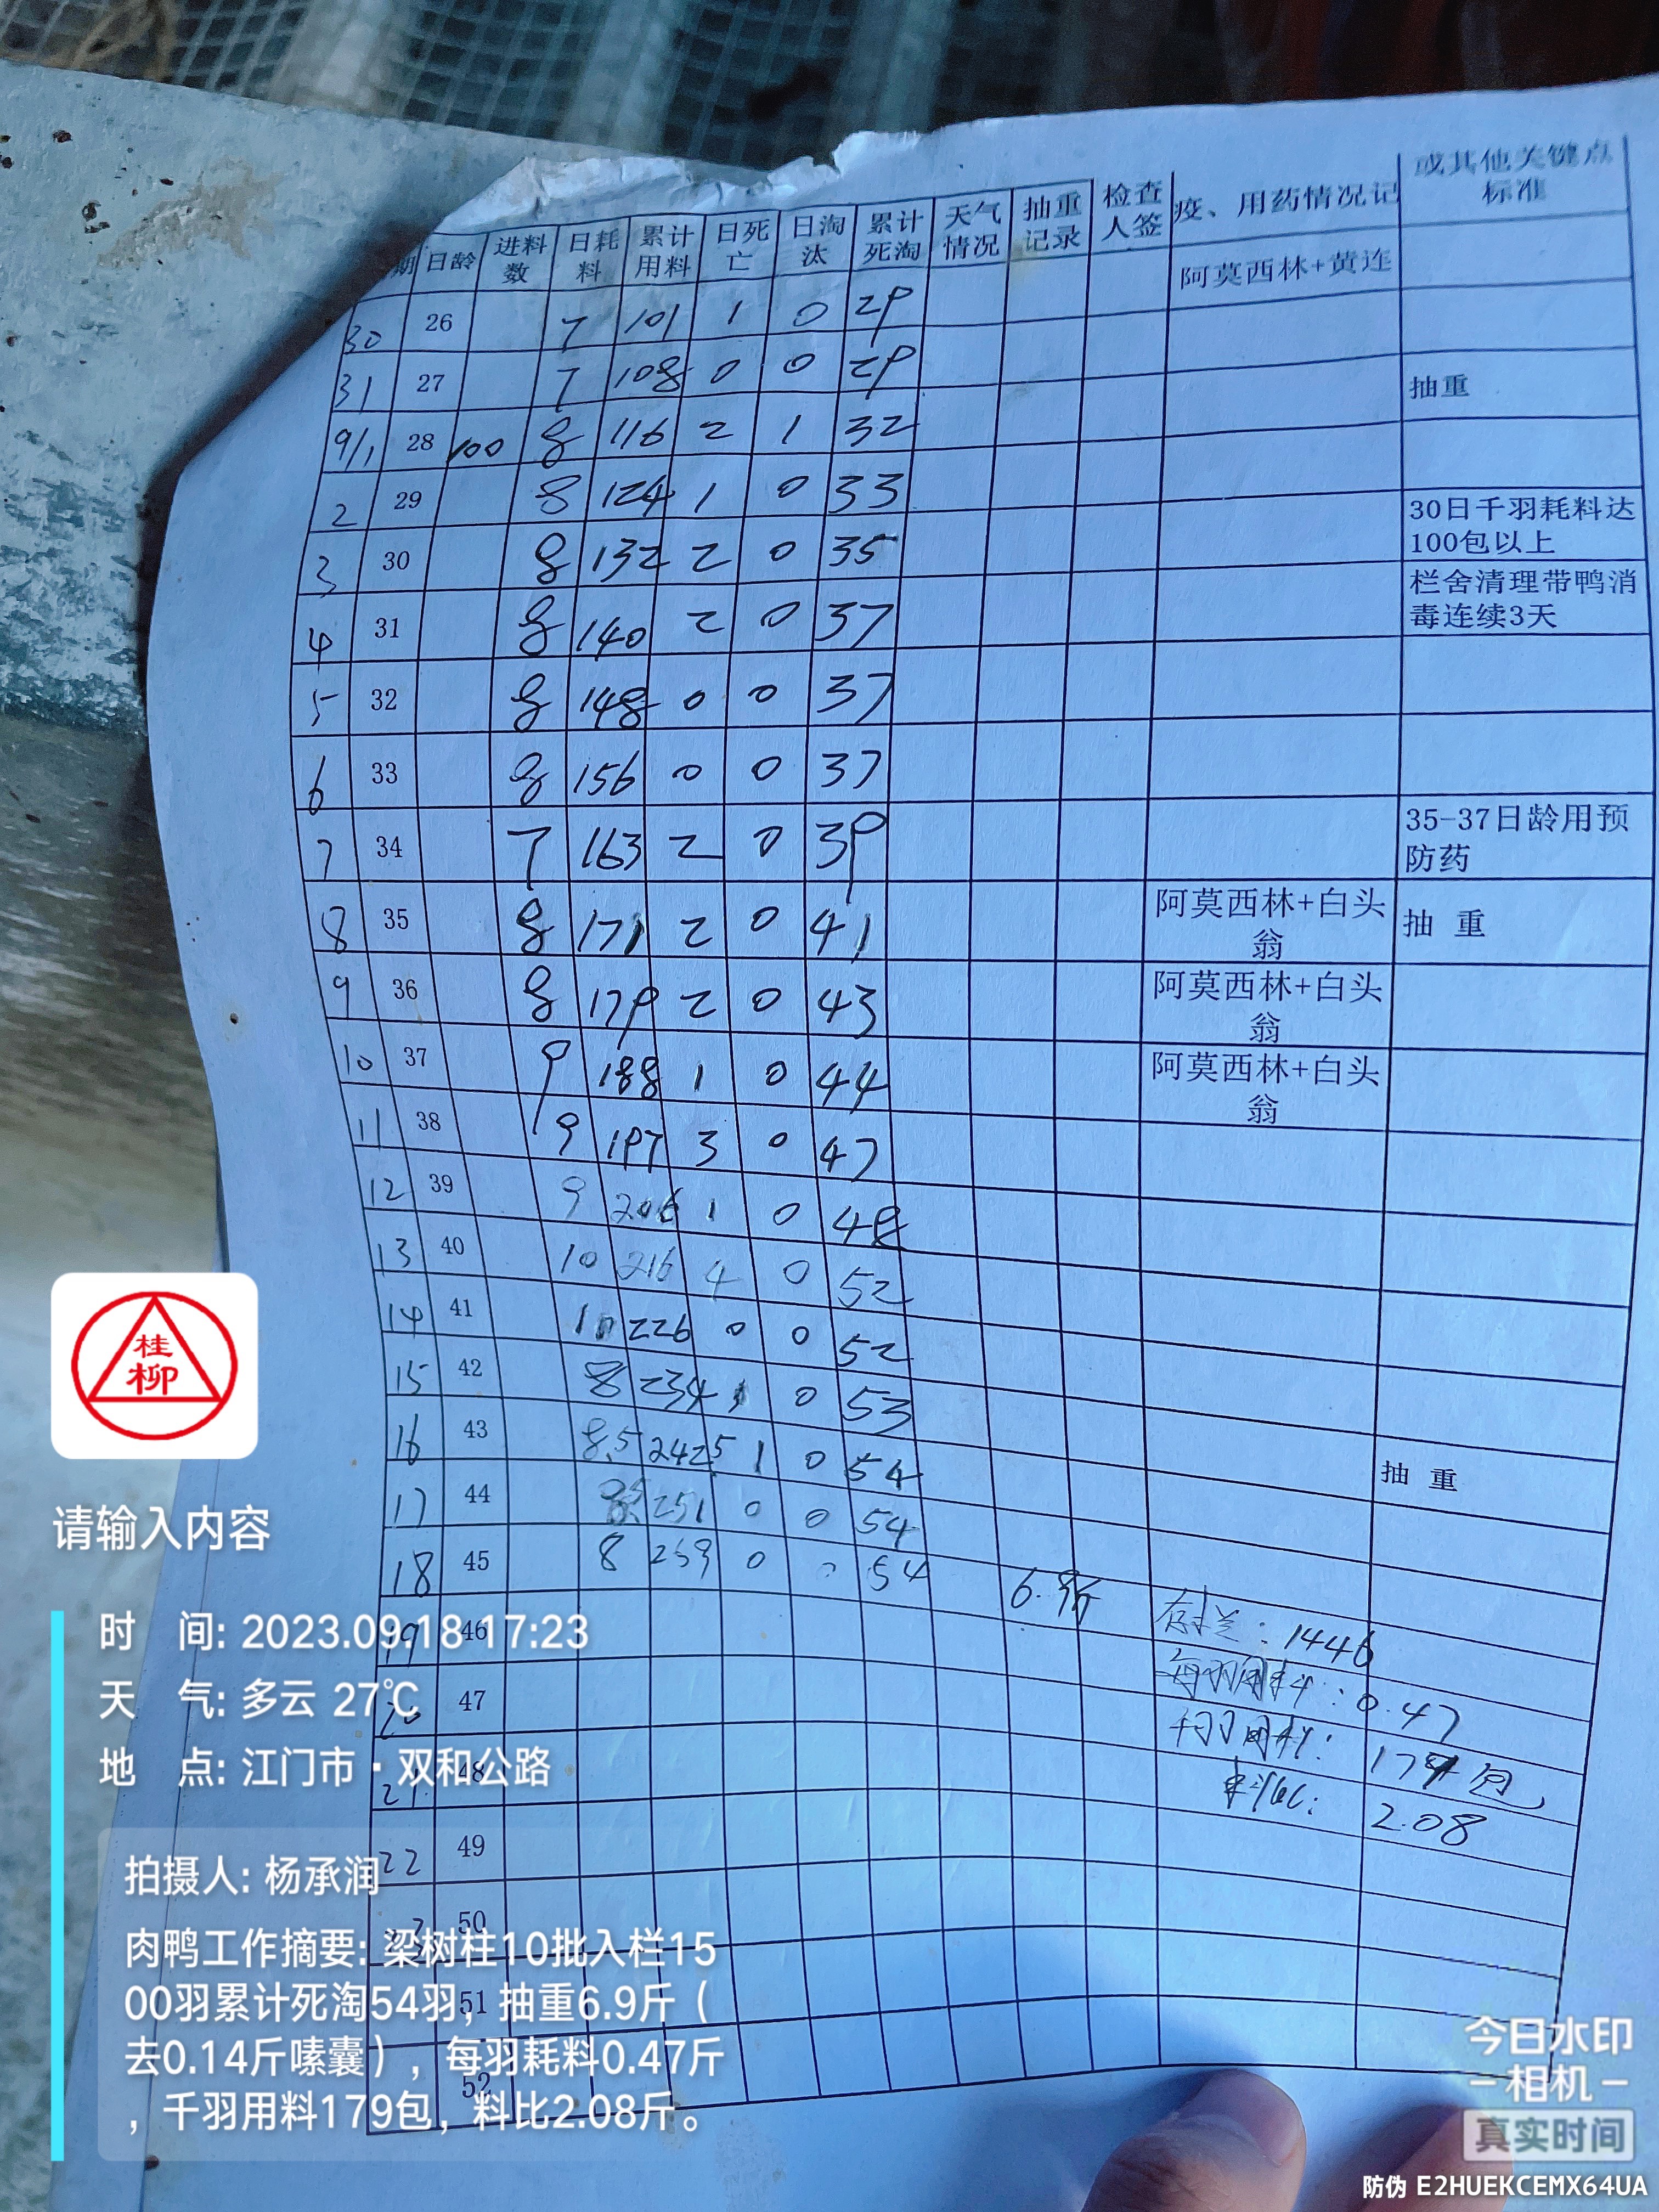 期 日龄 进料数 日耗料 累计用料 日死亡 日淘汰 累计死淘 天气情况 抽重记录 检查人签 疫、用药情况记 或其他关键点标准
30 26 7 101 1 0 29 阿莫西林+黄连
31 27 7 108 0 0 29 抽重
9/1 28 100 8 116 2 1 32
2 29 8 124 1 0 33 30日千羽耗料达100包以上
3 30 8 132 2 0 35 栏舍清理带鸭消毒连续3天
4 31 8 140 2 0 37
5 32 8 148 0 0 37
6 33 8 156 0 0 37 35-37日龄用预防药
7 34 7 163 2 0 39
8 35 8 171 2 0 41 阿莫西林+白头翁 抽 重
9 36 8 179 2 0 43 阿莫西林+白头翁
10 37 9 188 1 0 44 阿莫西林+白头翁
11 38 9 197 3 0 47
12 39 9 206 1 0 48
13 40 10 216 4 0 52
14 41 10 226 0 0 52
15 42 8 234 1 0 53
16 43 8.5 242.5 1 0 54 抽 重
17 44 8.5 251 0 0 54
18 45 8 259 0 0 54 6.9斤
19 46 存栏：1446
47 每羽用料：0.47
21 48 千羽用料：179包
22 49 料比：2.08
50
51
52
桂柳
请输入内容
时 间: 2023.09.18 17:23
天 气: 多云 27℃
地 点: 江门市·双和公路
拍摄人: 杨承润
肉鸭工作摘要: 梁树柱10批入栏15
00羽累计死淘54羽，抽重6.9斤（
去0.14斤嗉囊），每羽耗料0.47斤
，千羽用料179包，料比2.08斤。
今日水印
相机
真实时间
防伪 E2HUEKCEMX64UA